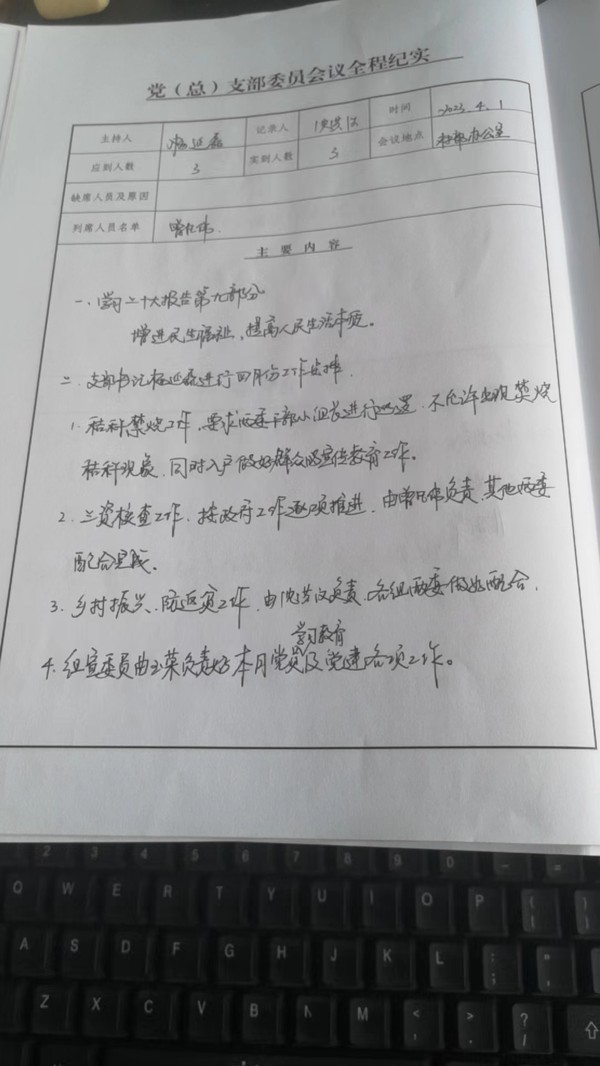 党（总）支部委员会议全程纪实
主持人 记录人 时间 2023.4.1
应到人数 3 实到人数 3 会议地点 村部办公室
缺席人员及原因
列席人员名单
主要内容
一、学习二十大报告第九部分
增进民生福祉，提高人民生活本质。
二、支部书记 进行四月份工作安排.
1. 秸秆禁烧工作，要求两委干部小组长进行 ，不允许出现焚烧
秸秆现象，同时入户做好群众的宣传教育工作。
2. 三资核查工作，按政府工作逐项推进，由 负责，其他两委
配合完成。
3. 乡村振兴、防返贫工作，由 负责，各组两委做好配合，
学习教育
4. 组宣委员曲玉菜负责好本月党员及党建各项工作。
2 3 4 5 6 7 8 9 0 - =
Q W E R T Y U I O P { [ } ]
A S D F G H J K L : ; " '
Z X C V B N M < , > . ? /